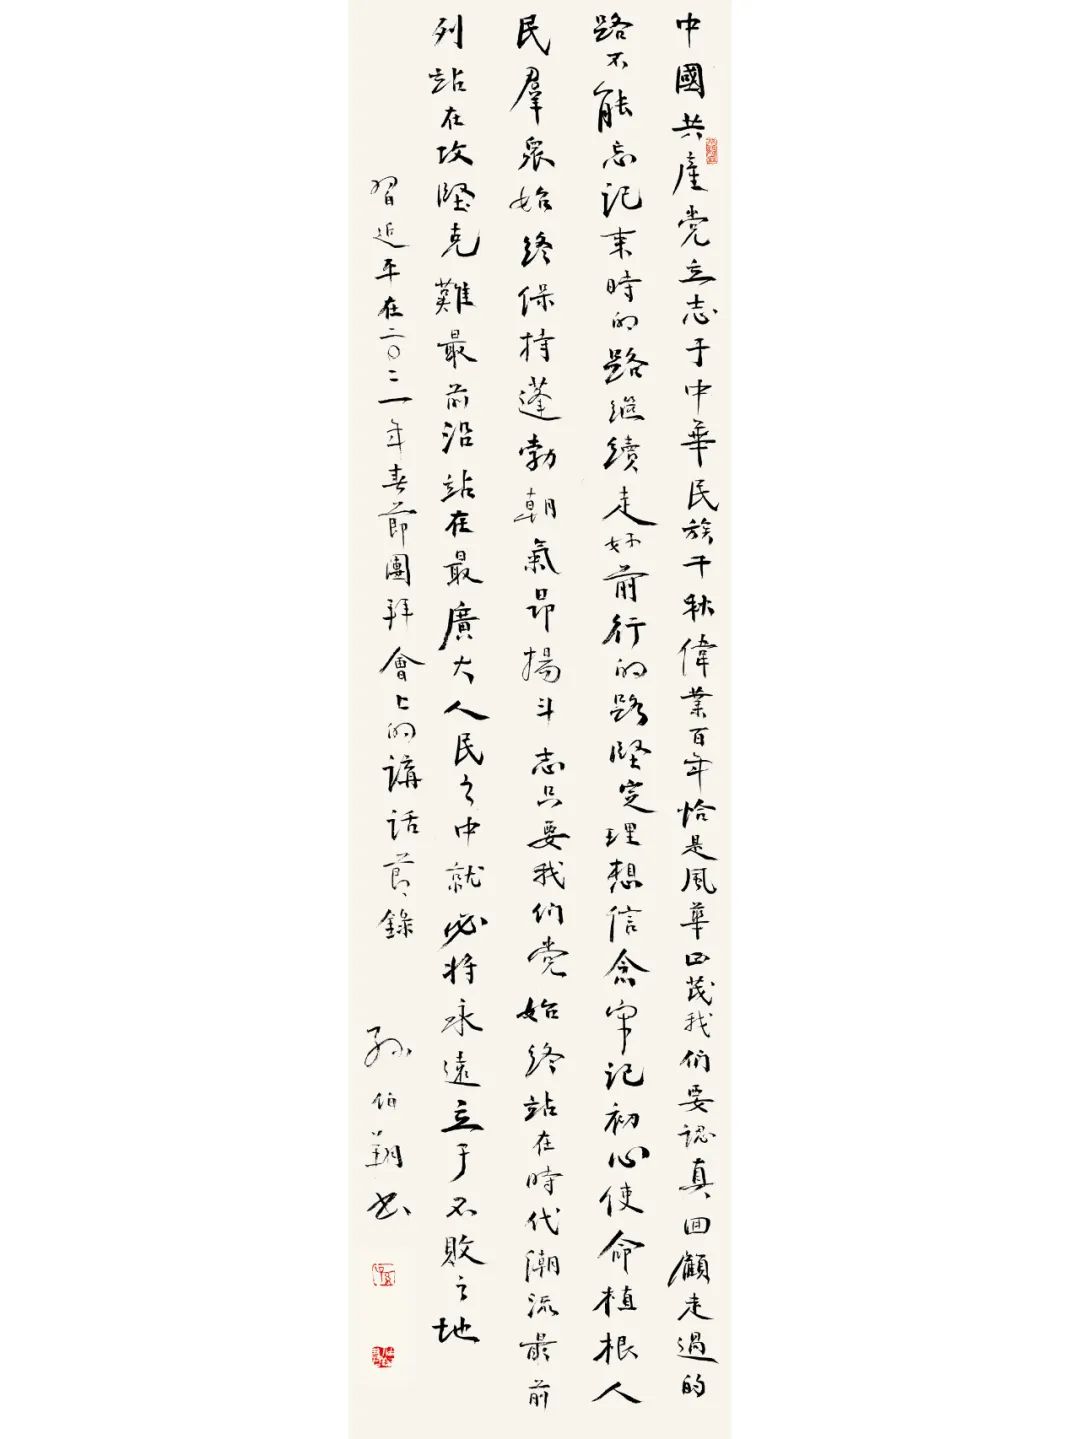 中國共產党立志于中華民族千秋偉業百年恰是風華正茂我们要認真回顧走過的
路不能忘记来時的路继續走好前行的路堅定理想信念牢记初心使命植根人
民羣衆始終保持蓬勃朝氣昂揚斗志只要我们党始終站在時代潮流最前
列站在攻堅克難最前沿站在最廣大人民之中就必将永遠立于不敗之地
習近平在二〇二一年春節團拜會上的講話節錄
孙伯翔书